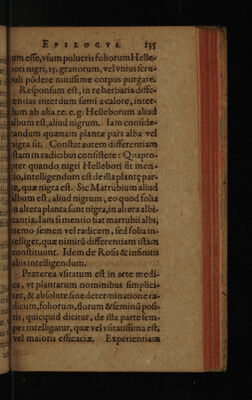 EPILOGVS. 135
um esse, vsum pulueris foliorum Helle-
bori nigri, 15. granorum, vel vnius scru-
puli põdere mitissime corpus purgate.
Responsum est, in re herbaria diffe-
rentias interdum sumi a calore, inter-
dum ab alia re. e. g. Helleborum aliud
album est, aliud nigrum. Iam conside-
randum quænam plantæ pars alba vel
nigra sit. Constat autem differentiam
istam in radicibus consistere: Quapro-
pter quando nigri Hellebori fit menti-
o, intelligendum est de illa plantæ par-
te, quæ nigra est. Sic Marrubium aliud
album est, aliud nigrum, eo quod folia
in altera planta sunt nigra, in altera albi-
cantia. Iam si mentio fiat marrubii albi,
nemo semen vel radicem, sed folia in-
telliget, quæ nimirũ differentiam istam
constituunt. Idem de Rosis & infinitis
aliis intelligendum.
Præterea vsitatum est in arte medi-
ca, vt plantarum nominibus simplici-
ter, & absolute sine determinatione ra-
dicum, foliorum, florum & seminũ posi-
tis, quicquid dicitur, de illa parte sem-
per intelligatur, quæ vsitatissima est,
vel maioris efficaciæ. Experientiam